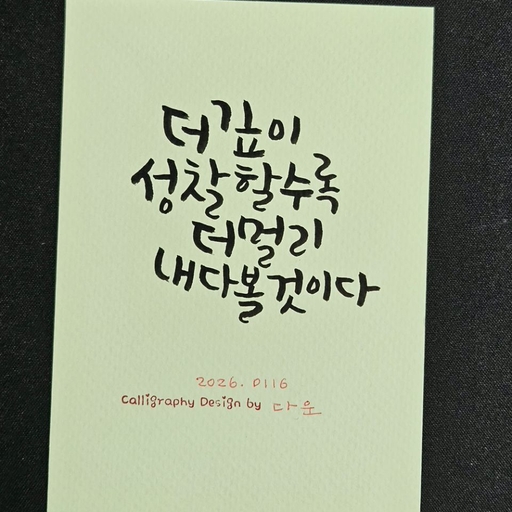 더 깊이
성찰할수록
더 멀리
내다볼 것이다
2026. 0116
Calligraphy Design by 다운